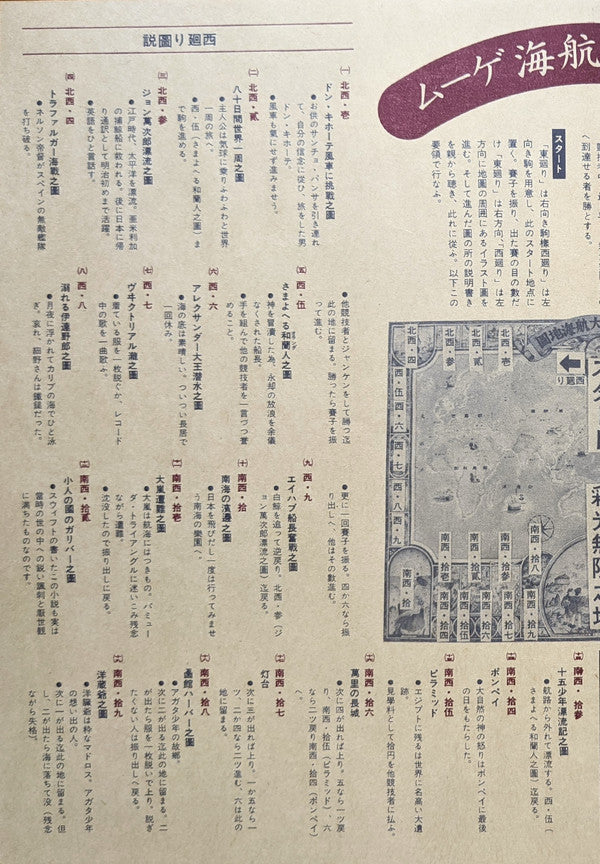 航海ゲーム
へ到達せる者を勝とする。
スタート
「東廻り」は右向き駒「西廻り」は左
向き駒を用意し、此のスタート地点に
置く。賽子を振り、出た賽の目の數だ
け、「東廻り」は右方向、「西廻り」は左
方向に地圖の周囲にあるイラスト圖を
進む。そして進んだ圖の所の説明書き
を親から聴き、此れに從ふ。以下この
要領で行なふ。
西廻り圖説
㈠ 北西・壱
ドン・キホーテ風車に挑戰之圖
●お供のサンチョ・パンサを引き連れ
て、自分の信念に從ひ、旅をした男
ドン・キホーテ。
●風車も氣にせず進みませう。
㈡ 北西・貳
八十日間世界一周之圖
●主人公は気球に乗りふわふわと世界
一周の旅へ。
●西・伍(さまよへる和蘭人之圖)ま
で駒を進める。
㈢ 北西・参
ジョン萬次郎漂流之圖
●江戸時代、太平洋を漂流。亜米利加
の捕鯨船に救われる。後に日本に帰
り通訳として明治初めまで活躍。
●英語をひと言話す。
㈣ 北西・四
トラファルガー海戰之圖
●ネルソン帝督がスペインの無敵艦隊
を打ち破る。
●他競技者とジャンケンをして勝つ迄
此の地に留まる。勝ったら賽子を振
って進む。
㈤ 西・伍
さまよへる和蘭人之圖
●神を冒瀆した為、永却の放浪を余儀
なくされた船長。
●手を組んで他の競技者を一言づつ誉
めること。
㈥ 西・六
アレクサンダー大王潜水之圖
●海の底は素晴しい。ついつい長居で
一回休み。
㈦ 西・七
ヴヰクトリアル瀧之圖
●着ている服を一枚脱ぐか、レコード
中の歌を一曲歌ふ。
㈧ 西・八
溺れる伊達野郎之圖
●月夜に浮かれてカリブの海でひと泳
ぎ。哀れ、細野さんは鐵鎚だった。
●更に一回賽子を振る。四か六なら振
り出しへ、他はその數進む。
㈨ 西・九
エイハブ船長奮戰之圖
●白鯨を追って逆戻り。北西・参(ジ
ョン萬次郎漂流之圖)迄戻る。
㈩ 南西・拾
南海の濱邊之圖
●日本を飛びだし一度は行ってみませ
う南海の樂園へ。
南西・拾壱
大嵐遭難之圖
●大嵐は航海にはつきもの。バミュー
ダ・トライアングルに迷いこみ残念
ながら遭難。
●沈没したので振り出しに戻る。
南西・拾貳
小人の國のガリバー之圖
●スウィフトの書いたこの小説も実は
當時の世の中への鋭い諷刺と厭世観
に満ちたものなのです。
南西・拾参
十五少年漂流記之圖
●航路から外れて漂流する。西・伍(
さまよへる和蘭人之圖)迄戻る。
南西・拾四
ポンペイ
●大自然の神の怒りはポンペイに最後
の日をもたらした。
南西・拾伍
ピラミッド
●エジプトに残るは世界に名高い大遺
跡。
●見學料として拾円を他競技者に払ふ。
南西・拾六
萬里の長城
●次に四が出れば上り。五なら一ツ戻
り、南西・拾伍(ピラミッド)、六
なら二ツ戻り南西・拾四(ポンペイ)
へ。
南西・拾七
灯台
●次に三が出れば上り。一か五なら一
ツ、二か四なら二ツ進む、六は此の
地に留まる。
南西・拾八
凾館ハーバー之圖
●アガタ少年の故郷。
●次に二が出る迄此の地に留まる。二
が出たら服を一枚脱いで上り。脱ぎ
たくない人は振り出しへ戻る。
南西・拾九
洋蔵爺之圖
●洋蔵爺は粋なマドロス。アガタ少年
の想い出の人。
●次に一が出る迄此の地に留まる。但
し、二が出たら海に落ちて没(残念
ながら失格)。
大航海地圖
西廻り
北西・壱
北西・貳
北西・参
北西・四
西・伍
西・六
西・七
西・八
西・九
南西・拾
南西・拾壱
南西・拾貳
南西・拾参
南西・拾四
南西・拾伍
南西・拾六
南西・拾七
南西・拾八
南西・拾九